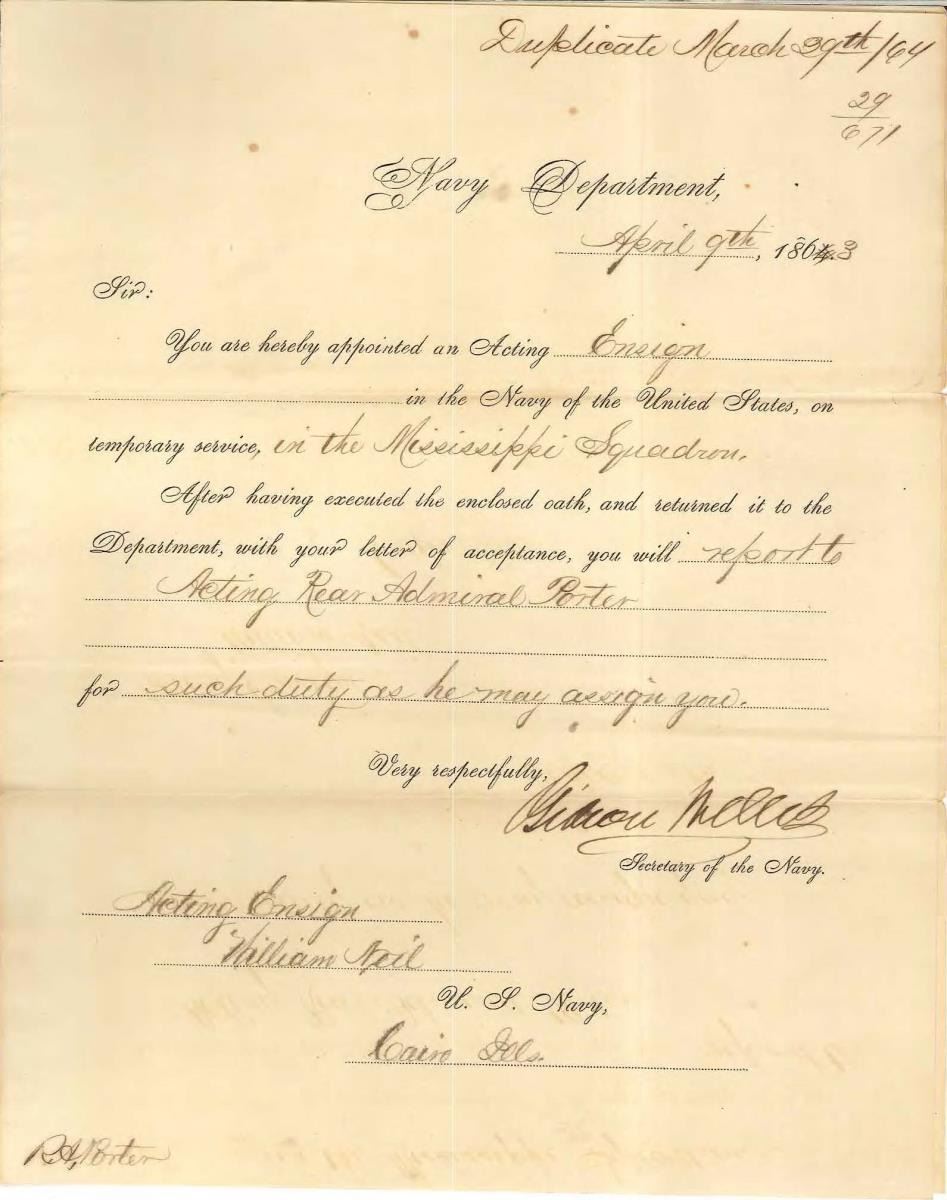 Duplicate March 29th/64
29
671
Navy Department,
April 9th, 1863
Sir:
You are hereby appointed an Acting Ensign
in the Navy of the United States, on
temporary service, in the Mississippi Squadron.
After having executed the enclosed oath, and returned it to the
Department, with your letter of acceptance, you will report to
Acting Rear Admiral Porter
for such duty as he may assign you.
Very respectfully,
Gideon Welles
Secretary of the Navy.
Acting Ensign
William Neil
U. S. Navy,
Cairo Ills.
R.A. Porter